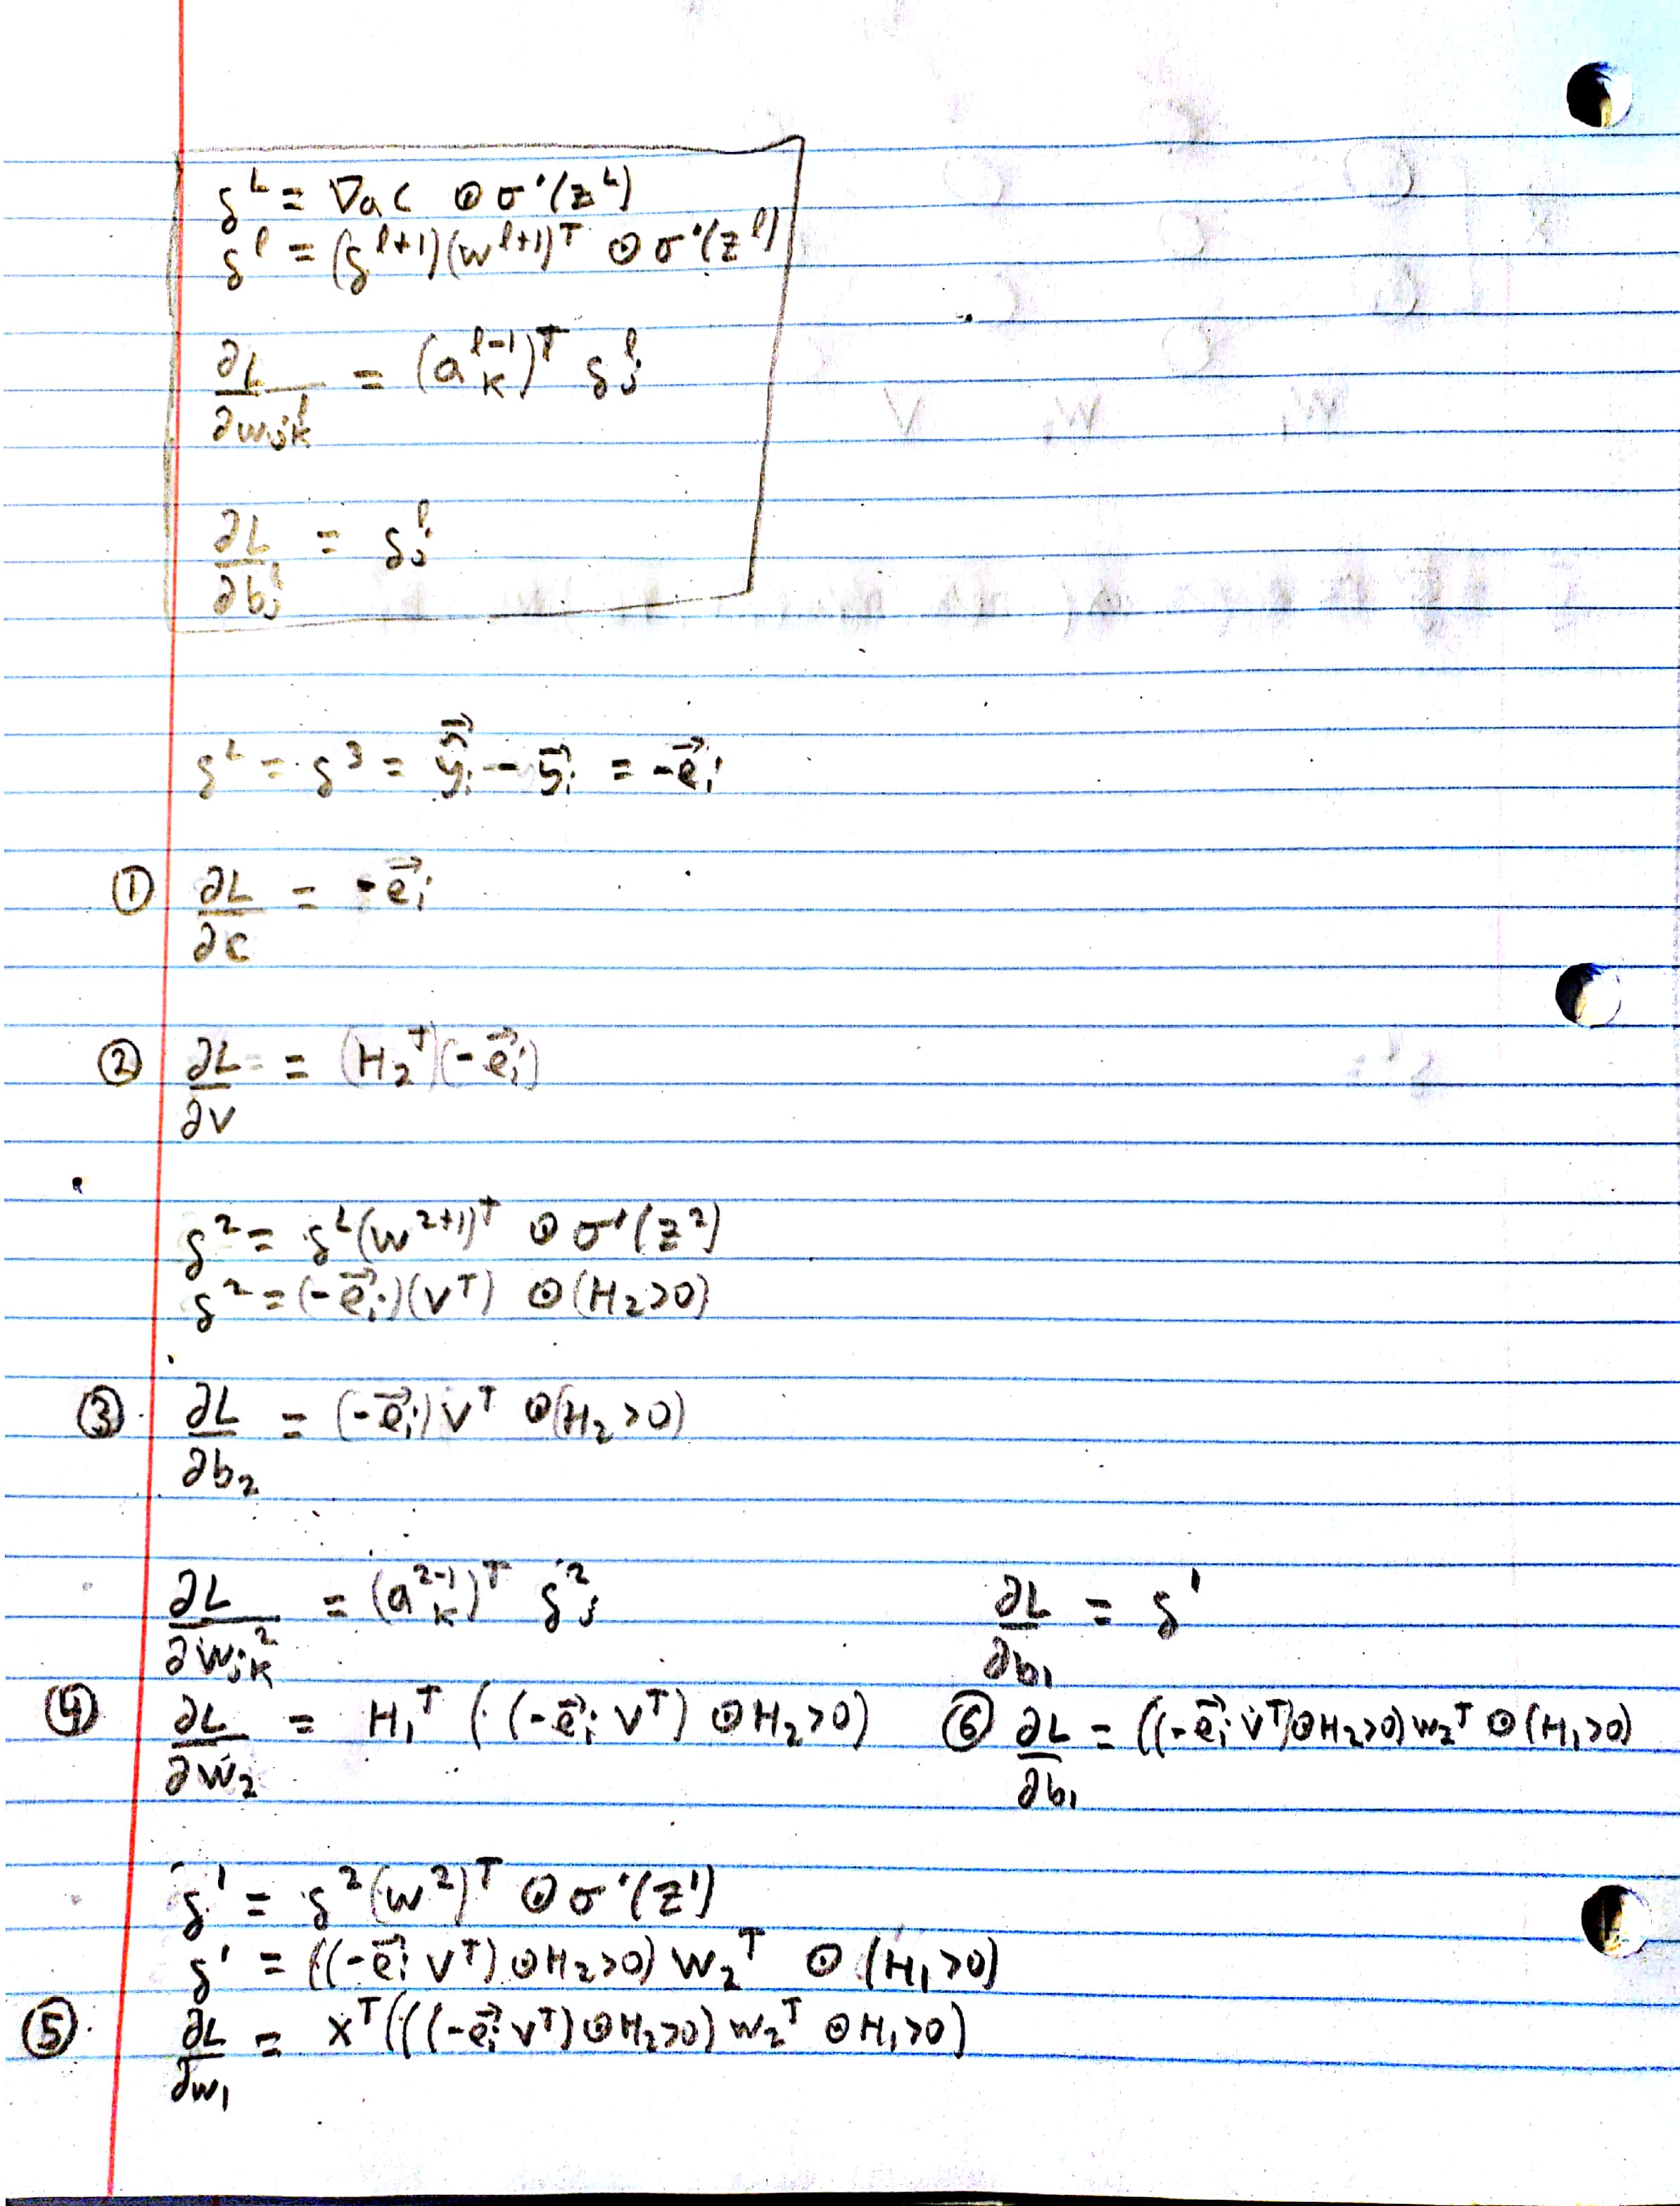 δ^L = ∇aC ⊙ σ'(z^L)
δ^l = (δ^{l+1})(w^{l+1})^T ⊙ σ'(z^l)
∂L/∂w_{jk}^l = (a_k^{l-1})^T δ_j^l
∂L/∂b_j^l = δ_j^l
δ^L = δ^3 = \vec{ŷ}_i - \vec{y}_i = -\vec{e}_i
① ∂L/∂c = -\vec{e}_i
② ∂L/∂V = (H_2^T)(-\vec{e}_i)
δ^2 = δ^L(w^{2+1})^T ⊙ σ'(z^2)
δ^2 = (-\vec{e}_i)(V^T) ⊙ (H_2>0)
③ ∂L/∂b_2 = (-\vec{e}_i)V^T ⊙ (H_2>0)
∂L/∂w_{jk}^2 = (a_k^{2-1})^T δ_j^2
④ ∂L/∂W_2 = H_1^T ((-\vec{e}_i V^T) ⊙ H_2>0)
∂L/∂b_1 = δ^1
⑥ ∂L/∂b_1 = ((-\vec{e}_i V^T) ⊙ H_2>0) W_2^T ⊙ (H_1>0)
δ^1 = δ^2(w^2)^T ⊙ σ'(z^1)
δ^1 = ((-\vec{e}_i V^T) ⊙ H_2>0) W_2^T ⊙ (H_1>0)
⑤ ∂L/∂w_1 = X^T(((-\vec{e}_i V^T) ⊙ H_2>0) W_2^T ⊙ H_1>0)